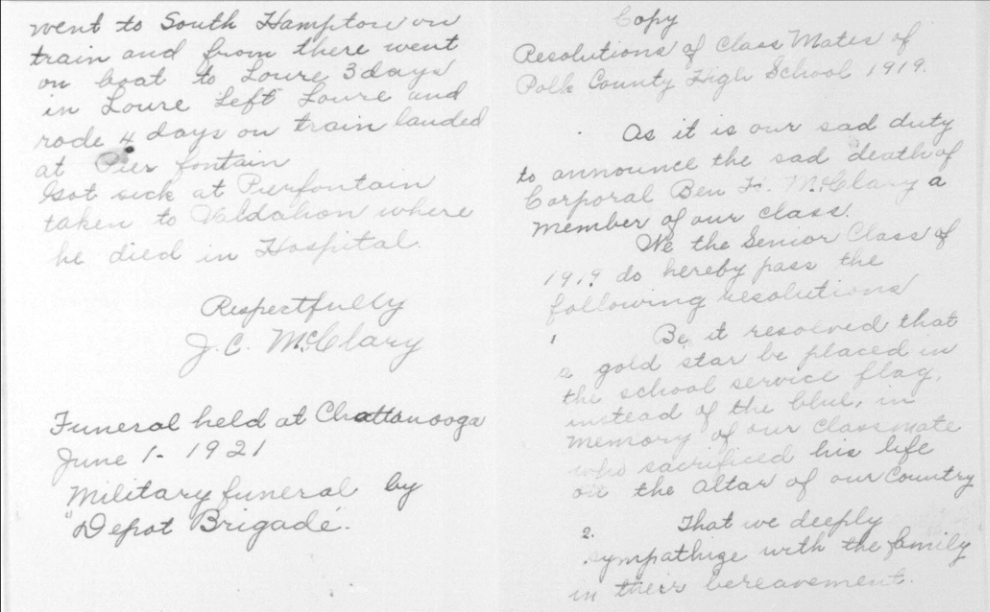 went to South Hampton on
train and from there went
on boat to Loure 3 days
in Loure Left Loure and
rode 4 days on train landed
at Pier fontain
Got sick at Pierfontain
taken to where
he died in Hospital.
Respectfully
J. C. McClary
Funeral held at Chattanooga
June 1 - 1921
Military funeral by
"Depot Brigade.
Copy
Resolutions of Class Mates of
Polk County High School 1919.
As it is our sad duty
to announce the sad death of
Corporal Ben H. McClary a
member of our class.
We the Senior Class of
1919 do hereby pass the
following resolutions
1 Be it resolved that
a gold star be placed in
the school service flag,
instead of the blue, in
memory of our classmate
who sacrificed his life
on the altar of our Country
2. That we deeply
sympathize with the family
in their bereavement.